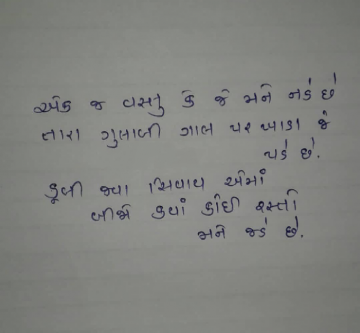 એક જ વસ્તુ કે જે મને નડે છે
તારા ગુલાબી ગાલ પર ખાડા જે
પડે છે.
ડૂબી જવા સિવાય એમાં
બીજો ક્યાં કોઈ રસ્તો
મને જડે છે.